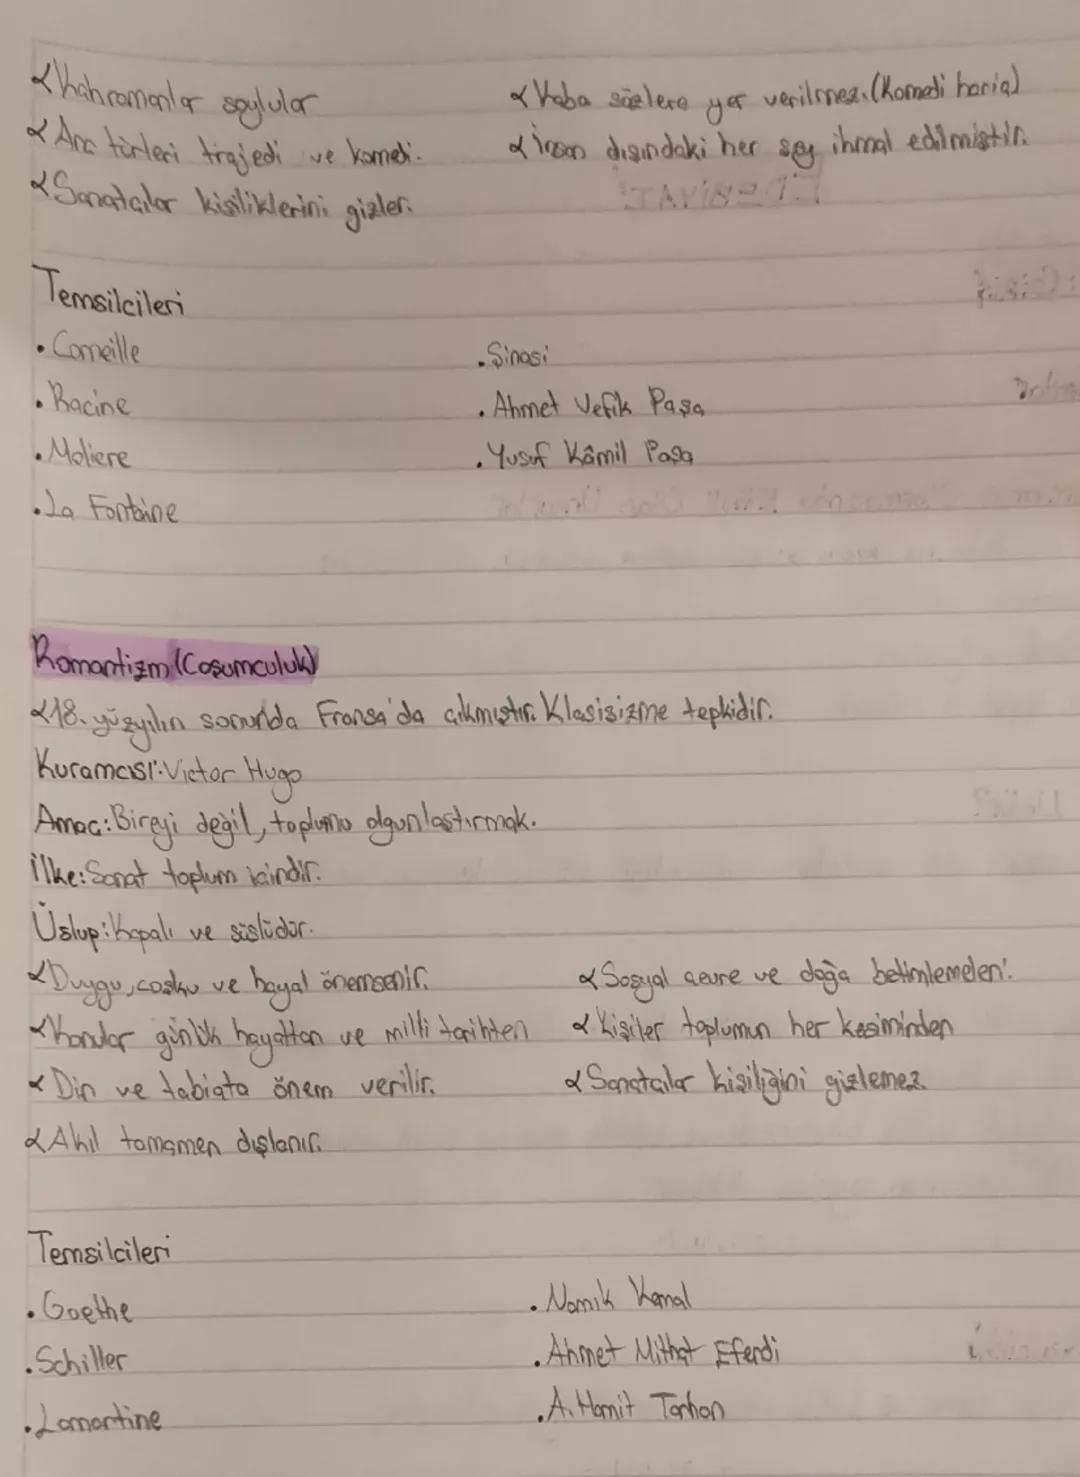 Kahramanlar soylular
Kaba sözlere yer verilmez. (Komedi hariç)
Ana türleri trajedi ve komedi.
İnsan dışındaki her şey ihmal edilmiştir.
Sanatçılar kişiliklerini gizler.
Temsilcileri
• Corneille
• Şinasi
• Racine
• Ahmet Vefik Paşa
• Moliere
• Yusuf Kâmil Paşa
• La Fontaine
Romantizm (Coşumculuk)
18. yüzyılın sonunda Fransa'da çıkmıştır. Klasisizme tepkidir.
Kuramcısı: Victor Hugo
Amaç: Bireyi değil, toplumu olgunlaştırmak.
İlke: Sanat toplum içindir.
Üslup: Kapalı ve süslüdür.
Duygu, coşku ve hayal önemsenir.
Sosyal çevre ve doğa betimlemeleri.
Konular günlük hayattan ve milli tarihten
Kişiler toplumun her kesiminden
Din ve tabiata önem verilir.
Sanatçılar kişiliğini gizlemez.
Akıl tamamen dışlanır.
Temsilcileri
• Goethe
• Namık Kemal
• Schiller
• Ahmet Mithat Efendi
• Lamartine
• A. Hamit Tarhan